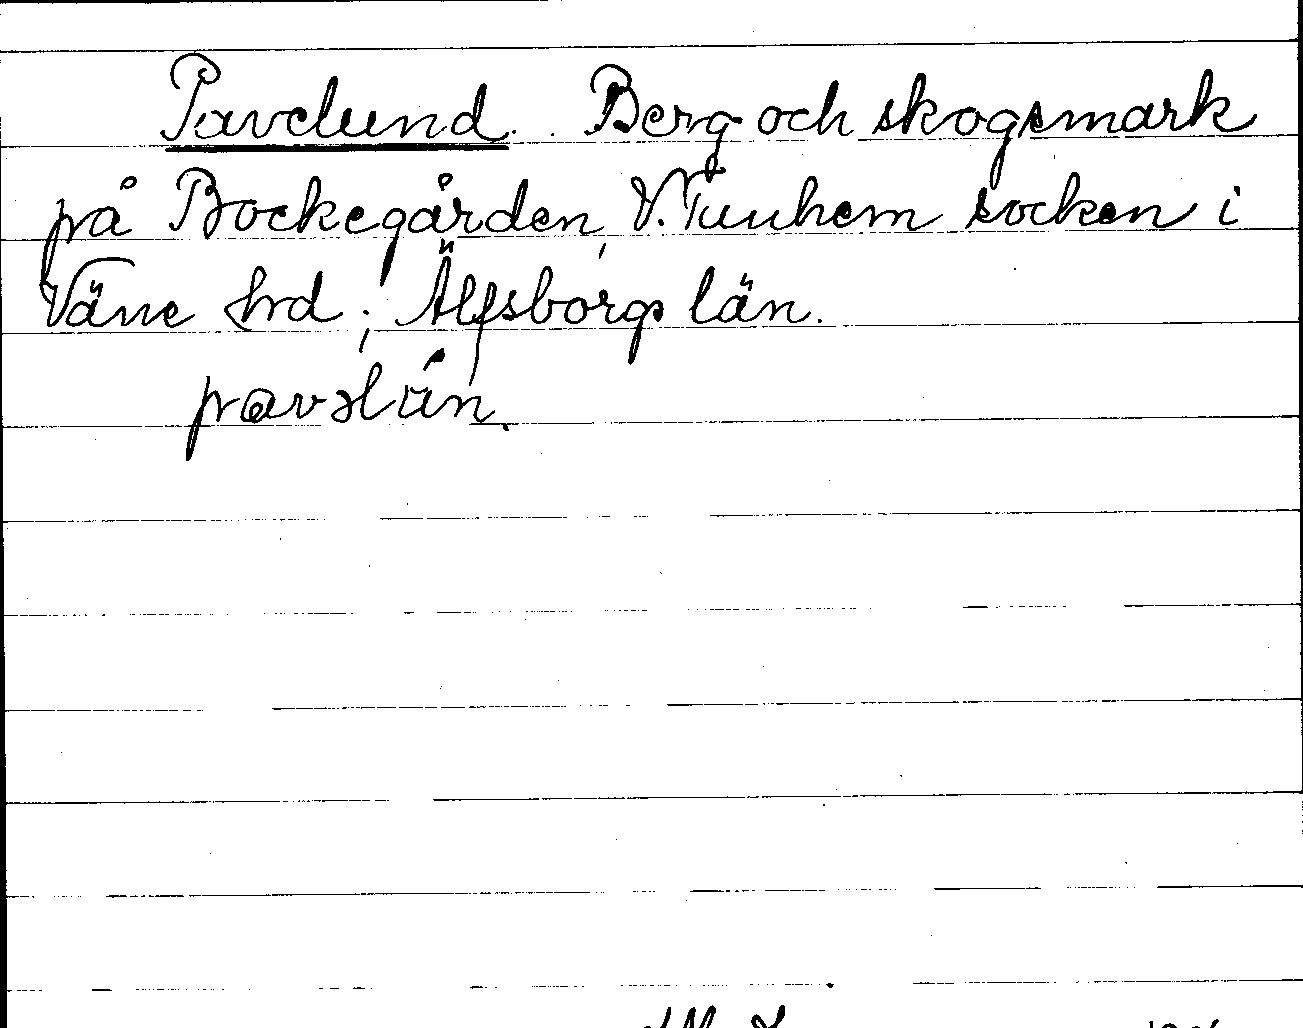 Pavelund. Berg och skogsmark
på Bockegården, V. Tunhem socken i
Väne hrd; Älfsborgs län.